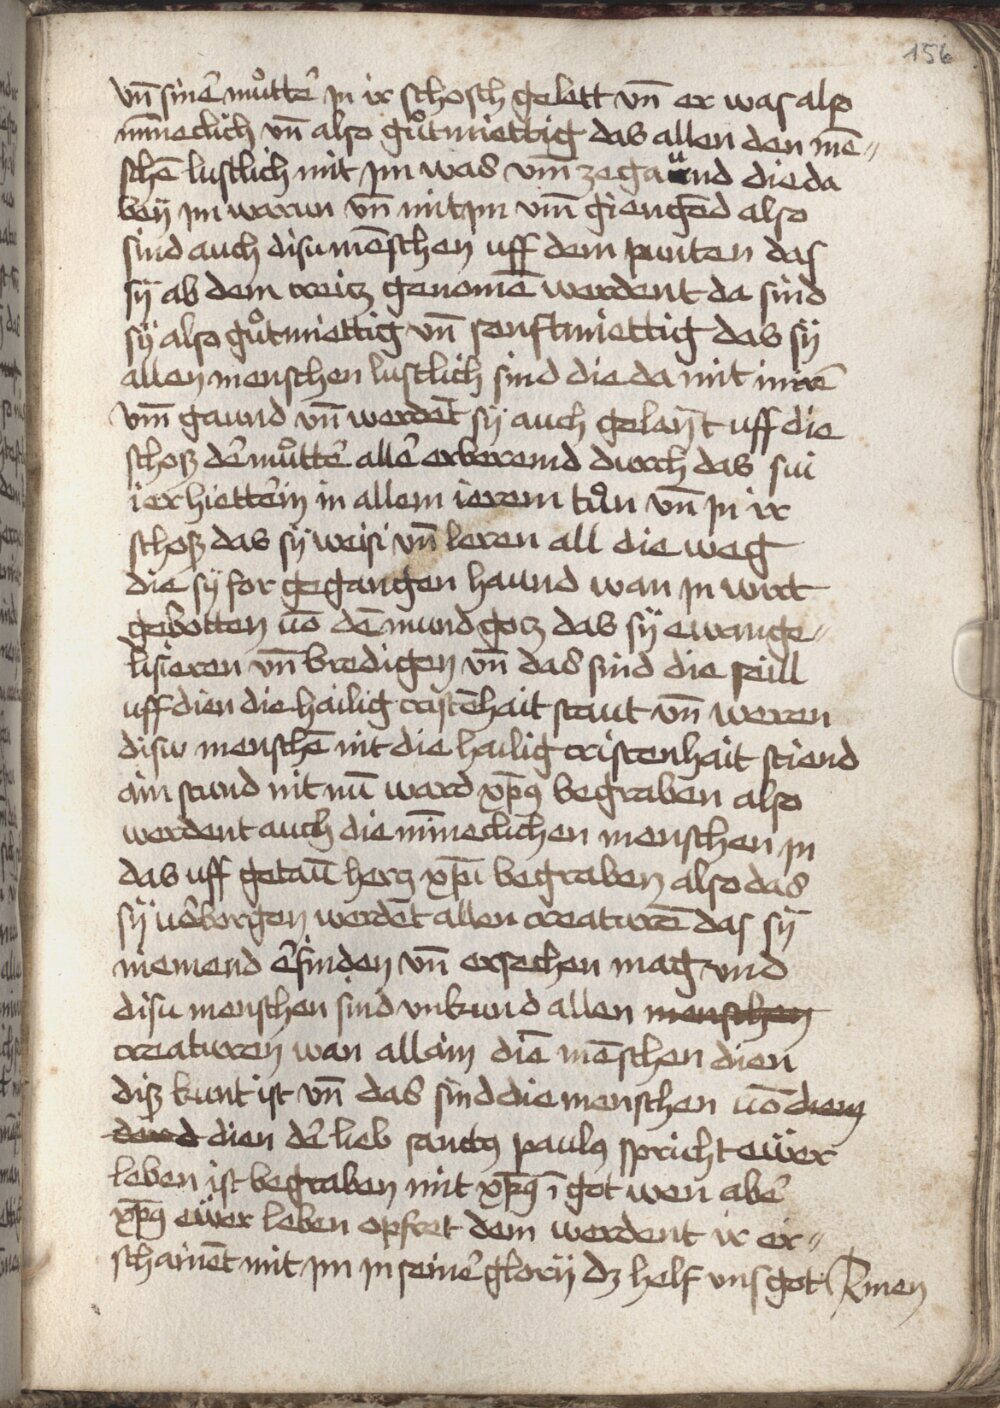 156
vn̄ sinē můttē in ir schosch gelett vn̄ er was also
mīneclich vn̄ also gůtmiettig das allen den mē-
schē lustlich mit jm was vm̄ zegaünd die da
bey jm warun vn̄ mit jm vm̄ giengēd also
sind auch disu mēschen uff dem punten das
sÿ ab dem creitz genomē werdent da sind
sÿ also gůtmiettig vn̄ senftmiettig das sÿ
allen menschen lustlich sind die da mit innē
vm̄ gaund vn̄ werdēt sÿ auch gelaÿt uff die
schosz dē můttē allē erberemd durch das sui
ier hiettēin in allem ierem tůn vn̄ jn ir
schosz das sÿ weisi vn̄ leren all die weg
die sÿ for gegangen haund wan jn wirt
gebotten uō dē mund gotz das sÿ ewange-
lisieren vn̄ bredigen vn̄ das sind die seill
uff dien die hailig cristēhait staut vn̄ weren
disu menschē nit die hailig cristenhait stiend
ain stund nit nū ward xp̄s begraben also
werdent auch die mīneclichen menschen jn
das uff getaū hertz xp̄i begraben also das
sÿ uēborgen werdēt allen creaturē das sÿ
niemend ēfinden vn̄ ersechen mag vnd
disu menschen sind vnkund allen menschen
creaturen wan allain diē mēschen dien
disz kunt ist vn̄ das sind die menschen uō diem
dend dien dē lieb sanctus paulus spricht eẅer
leben ist begraben mit xp̄s ī got wen abē
xp̄s eẅer leben opfret dem werdent ir er-
schainēt mit jm jn seinē glorÿ dz helf vns got Amen